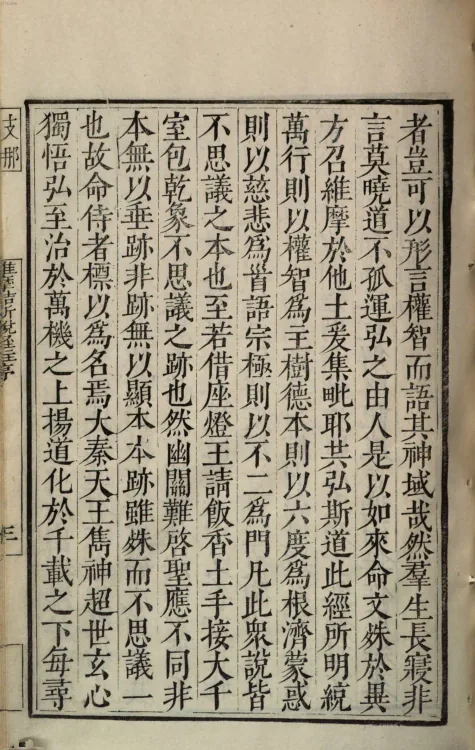 者豈可以形言權智而語其神域哉然羣生長寢非
言莫曉道不孤運弘之由人是以如來命文殊於異
方召維摩於他土爰集毗耶共弘斯道此經所明統
萬行則以權智爲主樹德本則以六度爲根濟蒙惑
則以慈悲爲首語宗極則以不二爲門凡此衆說皆
不思議之本也至若借座燈王請飯香土手接大千
室包乾象不思議之跡也然幽關難啓聖應不同非
本無以垂跡非跡無以顯本本跡雖殊而不思議一
也故命侍者標以爲名焉大秦天王雋神超世玄心
獨悟弘至治於萬機之上揚道化於千載之下每尋
支那
維摩詰所說經註序
三